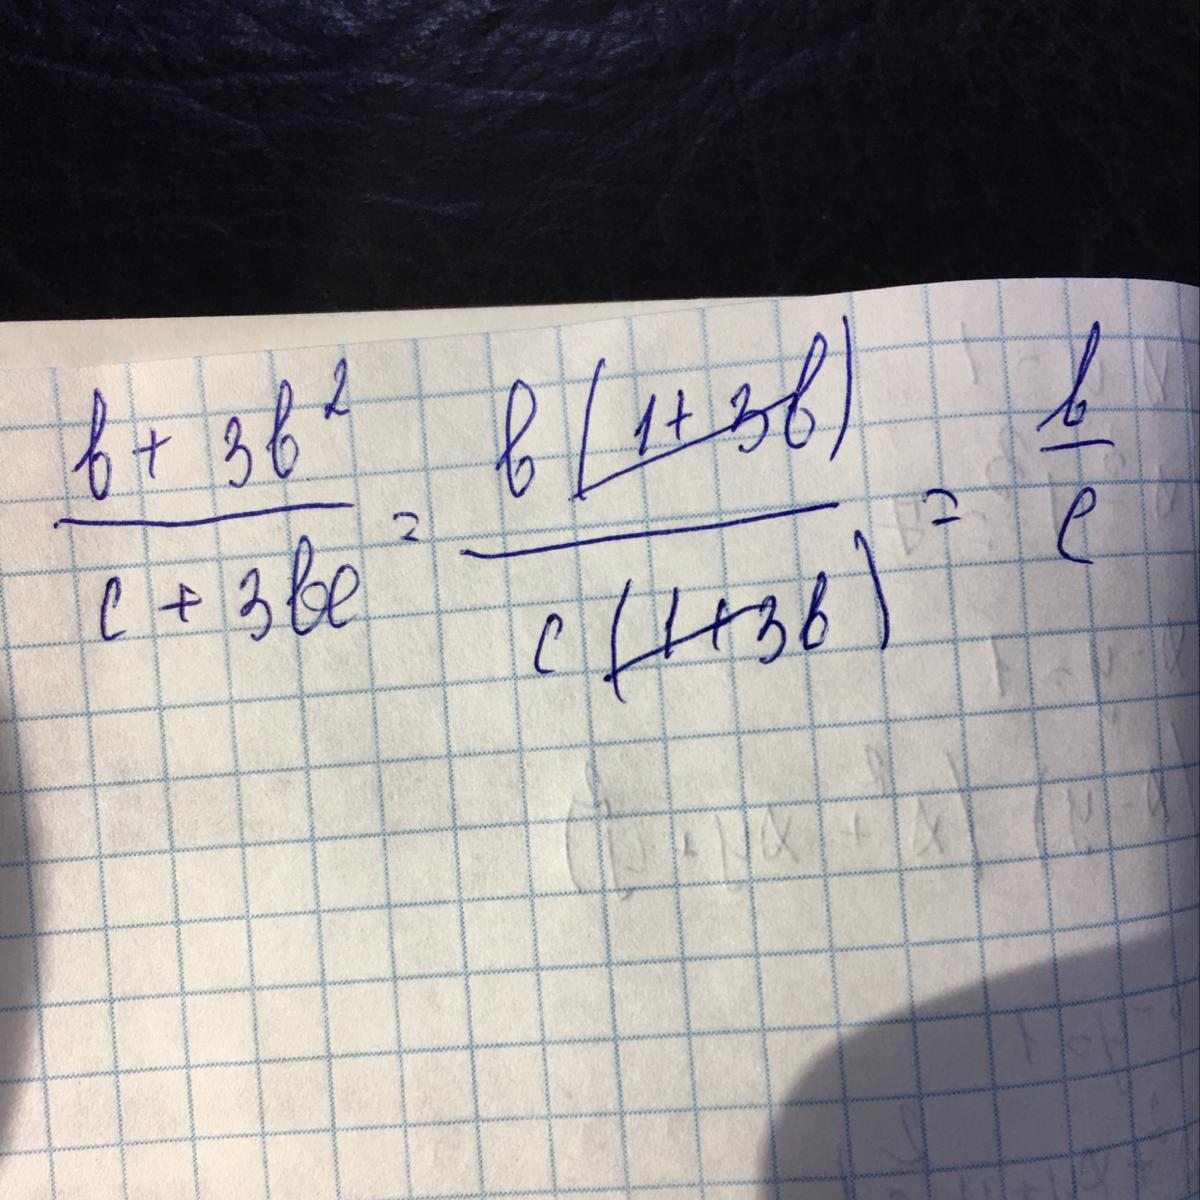 b + 3b² / c + 3bc = b(1+3b) / c(1+3b) = b / c